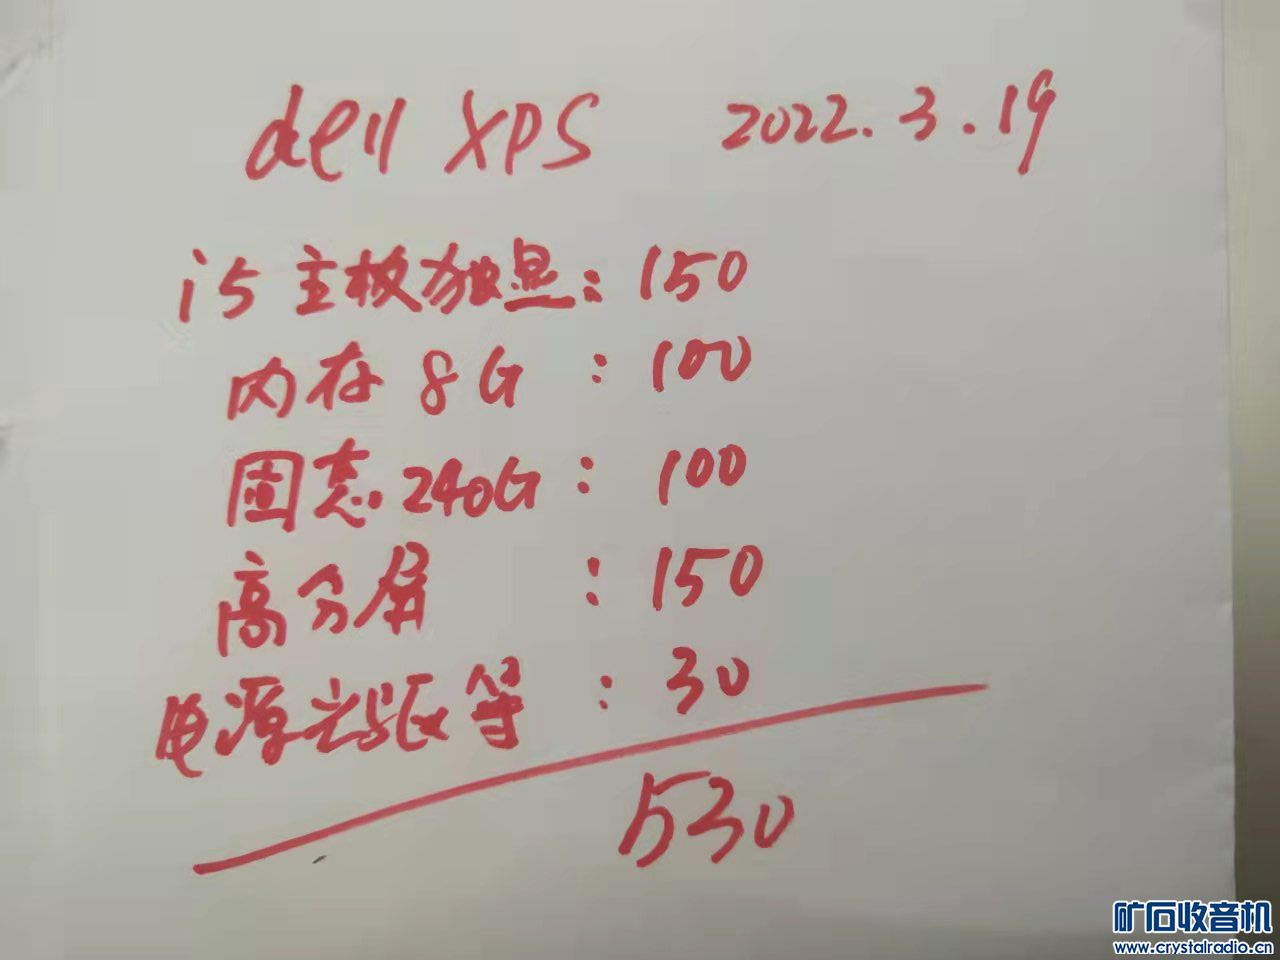 dell XPS 2022.3.19
i5主板独显：150
内存 8G ：100
固态240G：100
高分屏 ：150
电源光驱等：30
530
矿石收音机
www.crystalradio.cn